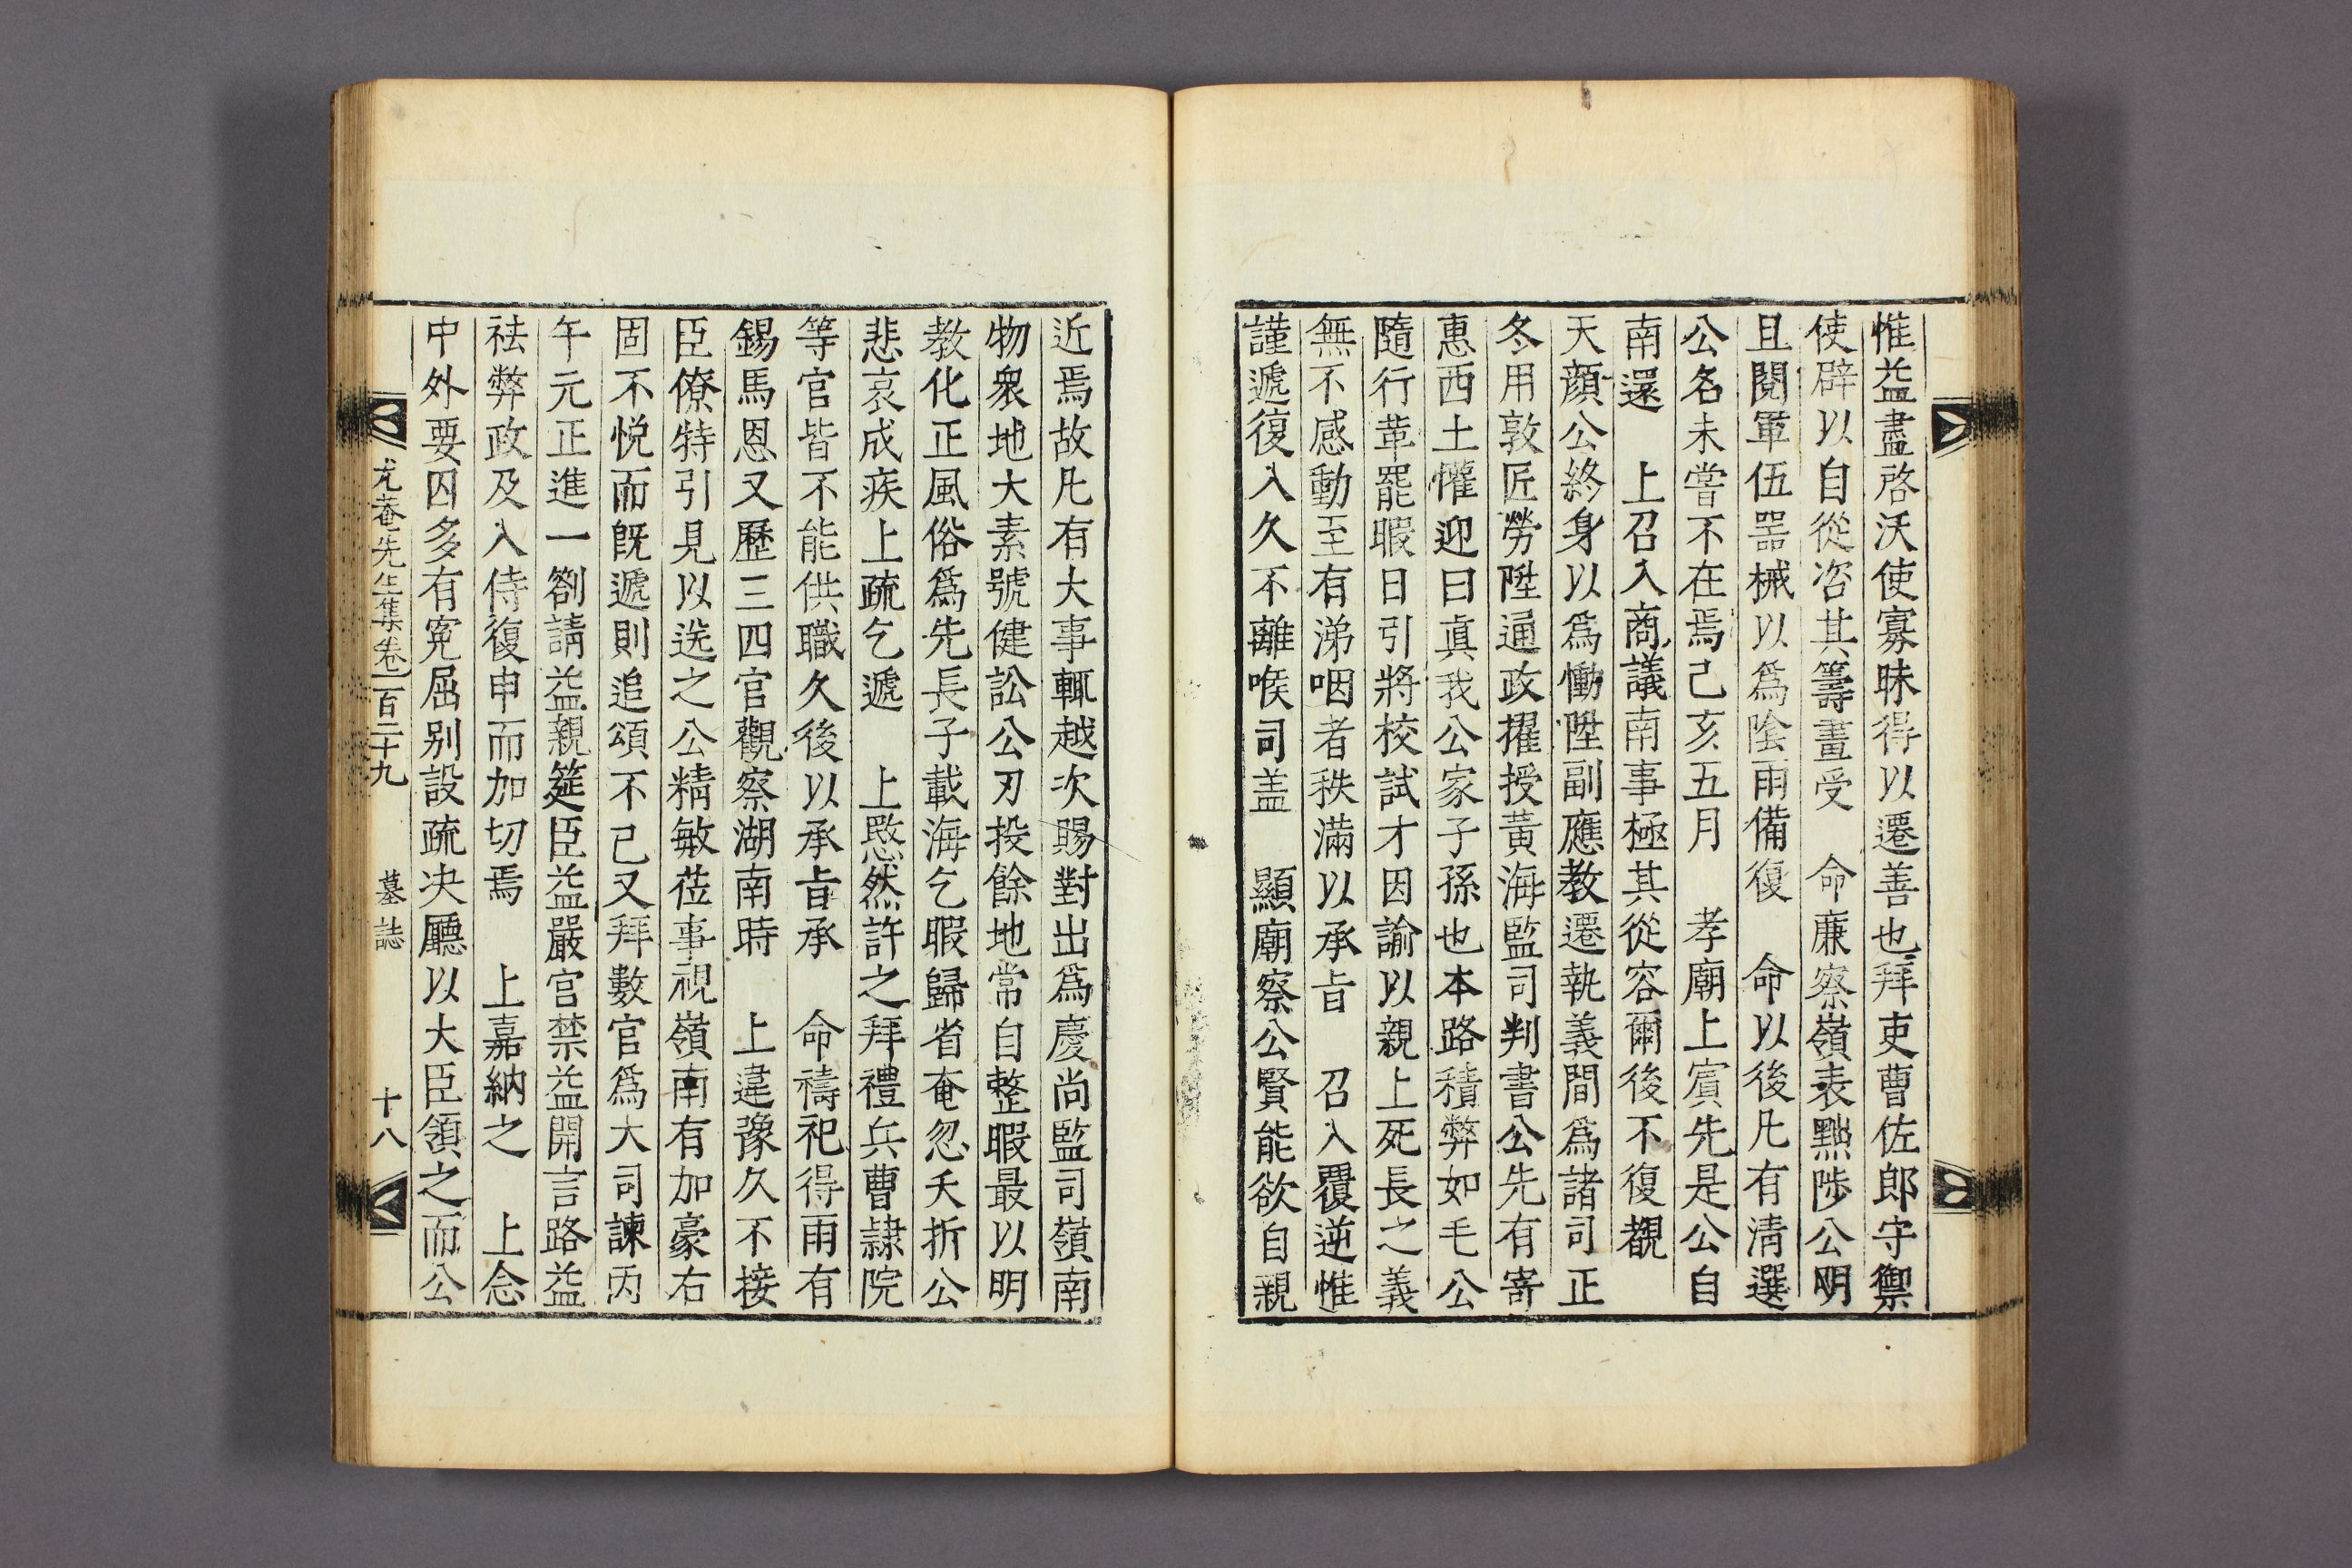 惟益盡啓沃使寡昧得以遷善也拜吏曹佐郎守禦
使辟以自從咨其籌畫受　命廉察嶺表黜陟公明
且閱軍伍器械以爲陰雨備復　命以後凡有淸選
公名未嘗不在焉己亥五月　孝廟上賓先是公自
南還　上召入商議南事極其從容爾後不復覩
天顔公終身以爲慟陞副應教遷執義間爲諸司正
冬用敦匠勞陞通政擢授黃海監司判書公先有寄
惠西土懽迎曰眞我公家子孫也本路積弊如毛公
隨行革罷暇日引將校試才因諭以親上死長之義
無不感動至有涕咽者秩滿以承旨　召入覆逆惟
謹遞復入久不離喉司盖　顯廟察公賢能欲自親
近焉故凡有大事輒越次賜對出爲慶尚監司嶺南
物衆地大素號健訟公刃投餘地常自整暇最以明
教化正風俗爲先長子載海乞暇歸省奄忽夭折公
悲哀成疾上疏乞遞　上愍然許之拜禮兵曹隷院
等官皆不能供職久後以承旨承　命禱祀得雨有
錫馬恩又歷三四官觀察湖南時　上違豫久不接
臣僚特引見以送之公精敏莅事視嶺南有加豪右
固不悅而旣遞則追頌不已又拜數官爲大司諫丙
午元正進一劄請益親筵臣益嚴宮禁益開言路益
祛弊政及入侍復申而加切焉　上嘉納之　上念
中外要囚多有寃屈別設疏决廳以大臣領之而公
尤菴先生集卷一百二十九　墓誌　十八